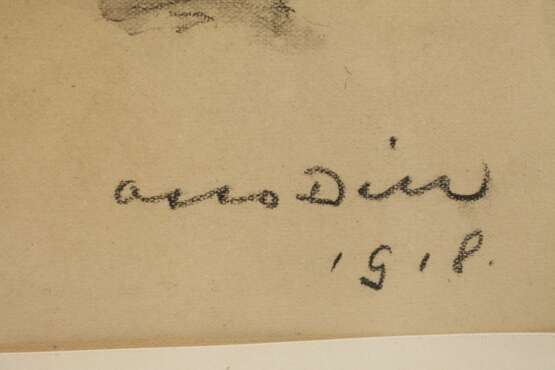 Otto Dill
1918.